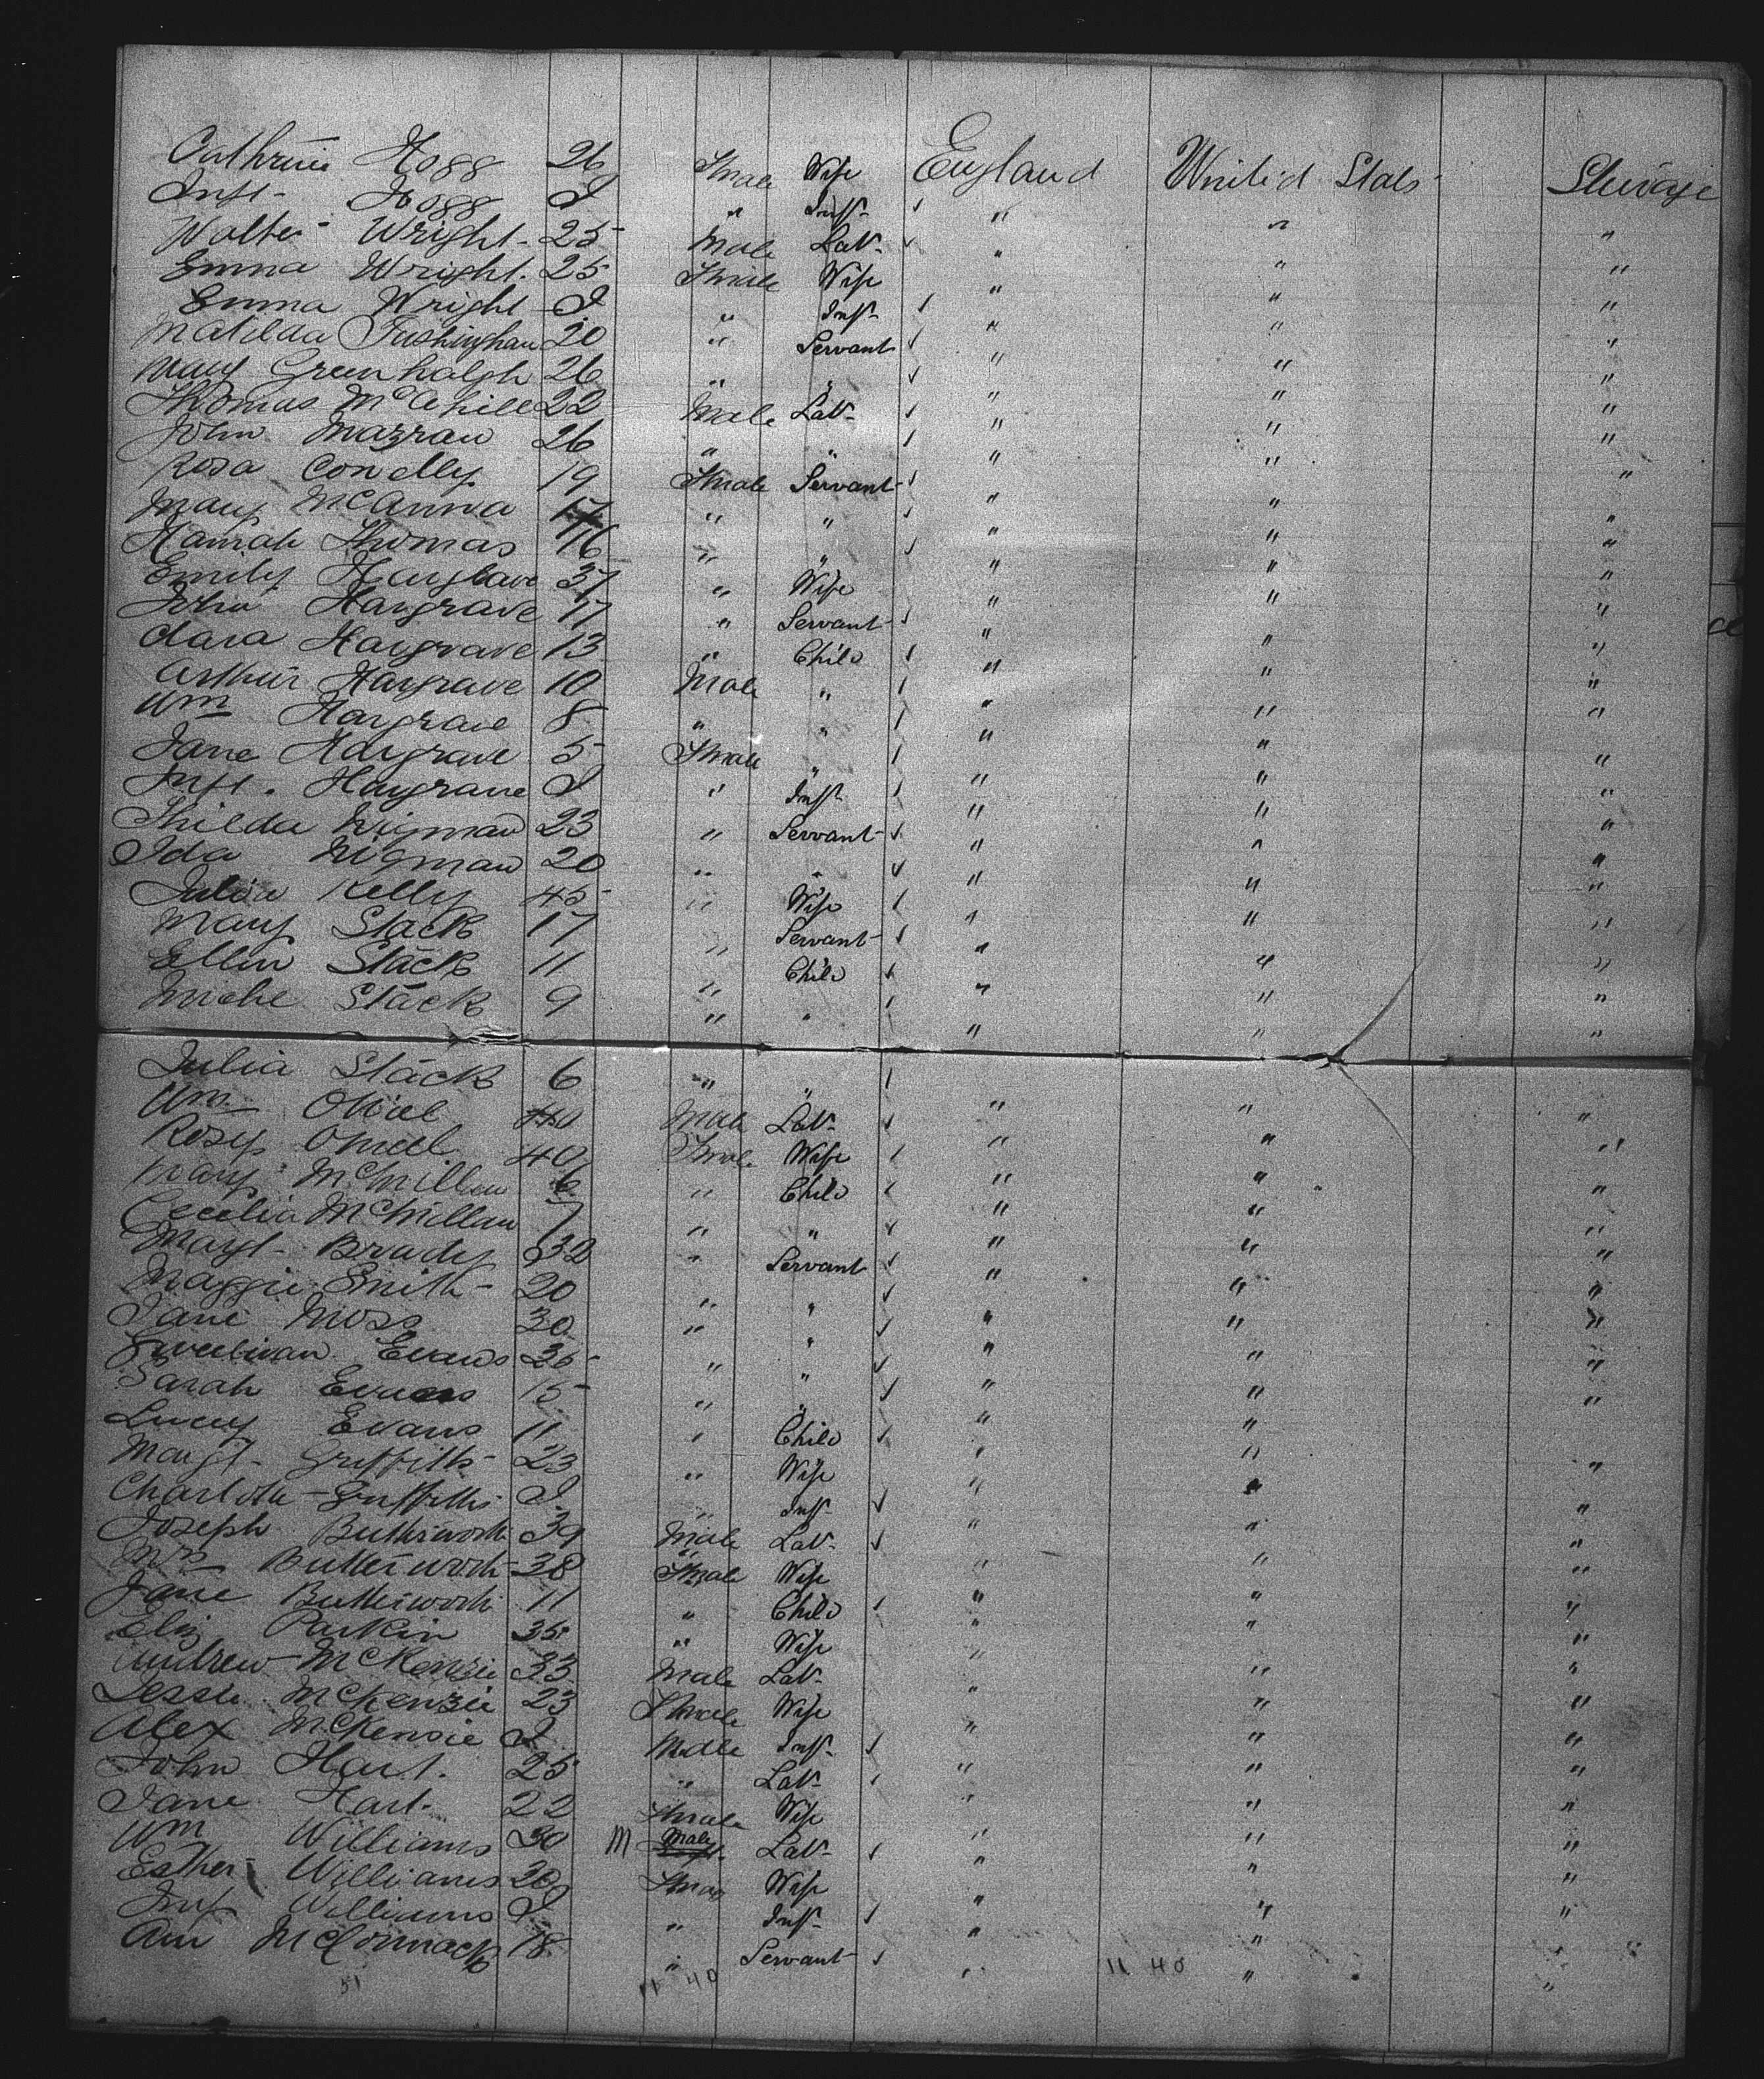 Cathrine Hogg 26 Fmale Wife England United Stats Steerage
Inft- Hogg I " Inft- " " "
Walter Wright- 25 Male Lab- " " "
Emma Wright. 25 Fmale Wife " " "
Emma Wright I " Inft- " " "
Matilda 20 " Servant " " "
Mary Greenhalgh 26 " " " " "
Thomas McAhill 22 Male Lab- " " "
John 26 " " " " "
Rosa Conelly 19 Fmale Servant " " "
Mary McAnna 17 " " " " "
Hannah Thomas 16 " " " " "
Emily Hargrave 37 " Wife " " "
John Hargrave 17 " Servant " " "
Clara Hargrave 13 " Child " " "
Arthur Hargrave 10 Male " " " "
Wm Hargrave 8 " " " " "
Jane Hargrave 5 Fmale " " " "
Inft. Hargrave I " Inft- " " "
23 " Servant " " "
Ida 20 " " " " "
Julia Kelly 45 " Wife " " "
Mary Stack 17 " Servant " " "
Ellen Stack 11 " Child " " "
Stack 9 " " " " "
Julia Stack 6 " " " " "
Wm ONiel 40 Male Lab- " " "
Rosy ONeel 40 Fmale Wife " " "
Mary McMillan 6 " Child " " "
Cecelia McMillan 7 " " " " "
Margt- Brady 32 " Servant " " "
Maggie Smith- 20 " " " " "
Jane Moss 30 " " " " "
Evans " " " " "
Sarah Evans 15 " " " " "
Lucy Evans 11 " Child " " "
Margt- Griffiths 23 " Wife " " "
Charlotte Griffiths I " Inft- " " "
Joseph Butterworth 39 Male Lab- " " "
Mrs Butterworth 38 Fmale Wife " " "
Jane Butterworth 11 " Child " " "
Eliz Parkin 35 " Wife " " "
Andrew McKenzie 33 Male Lab- " " "
Jessie McKenzie 23 Fmale Wife " " "
Alex McKensie I Male Inft- " " "
John Hart. 25 " Lab- " " "
Jane Hart. 22 Fmale Wife " " "
Wm Williams 30 M Male Lab- " " "
Esther Williams Fmale Wife " " "
Inf Williams I " Inft- " " "
Ann McCormack 18 " Servant " " "
51 11 40 11 40